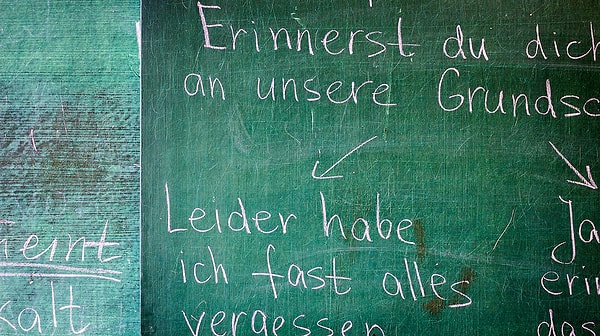 Erinnerst du dich
an unsere Grundsc
Leider habe
ich fast alles
vergessen
Ja
erin
das
kalt